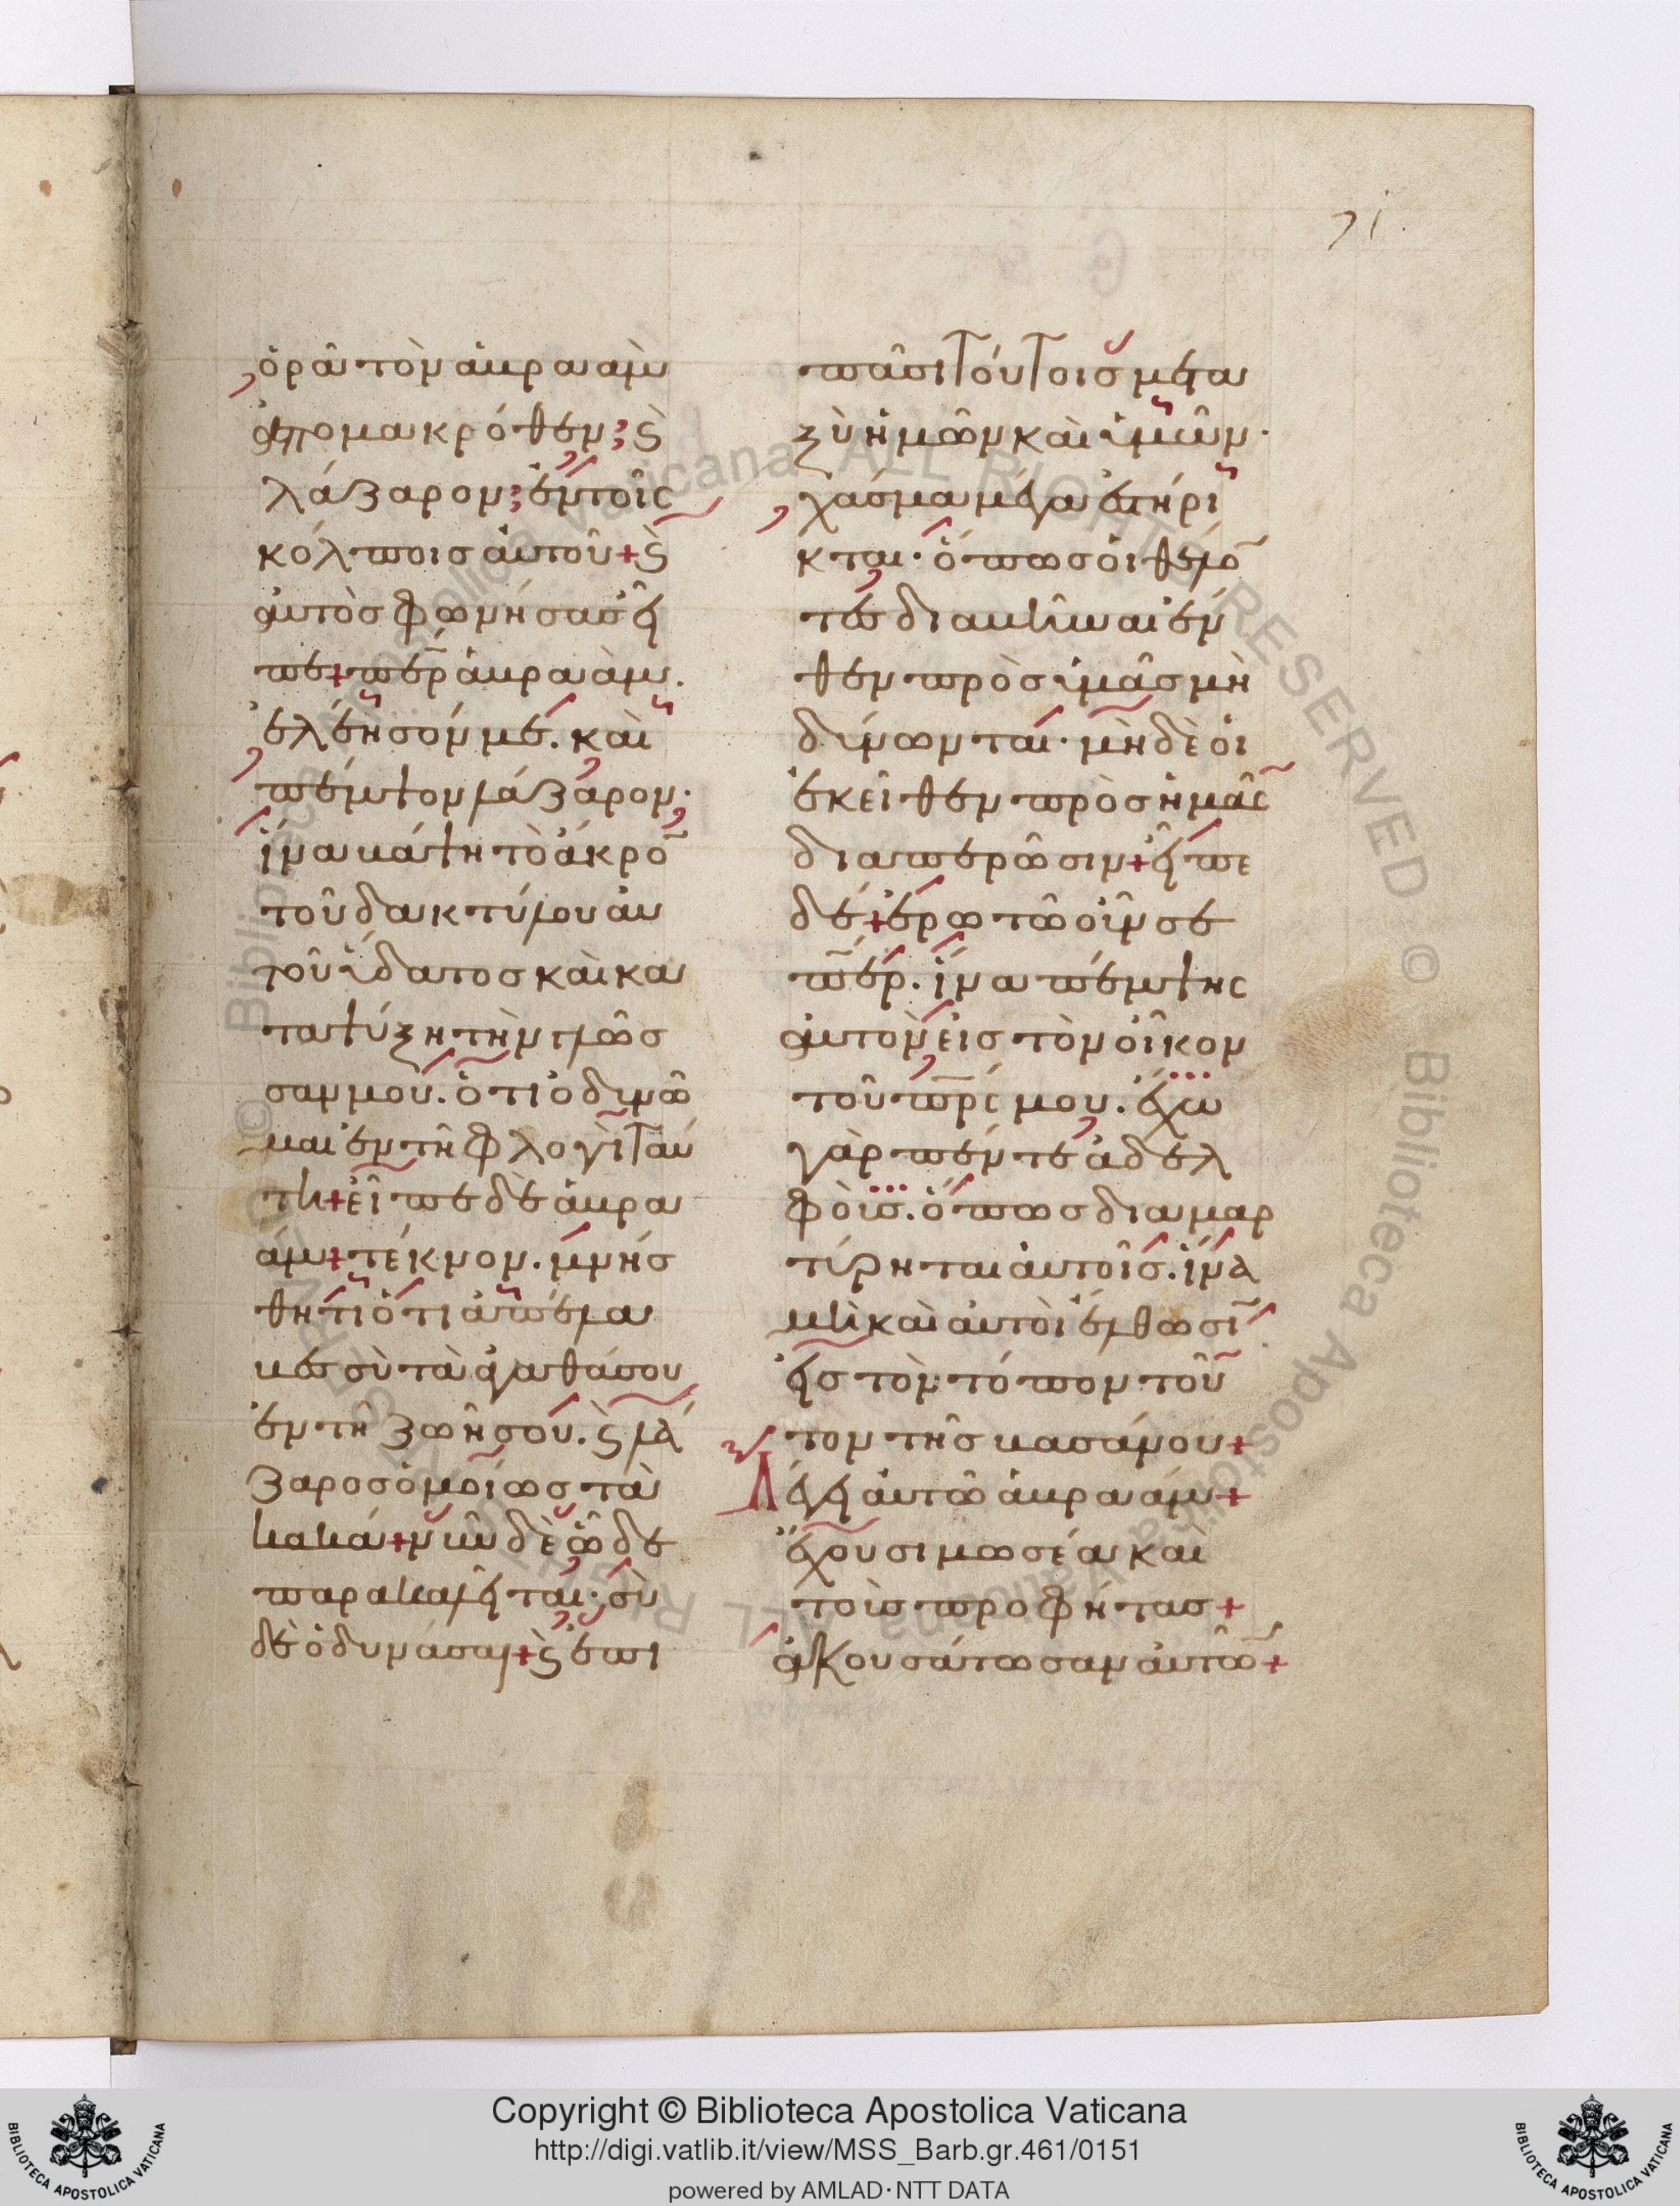 71.
ὁρᾶ τὸν ἀβρααὰμ
ἀπομακρόθεν; ϗ
λάζαρον; ἐν τοῖς
κόλποις αὐτοῦ + ϗ
αὐτὸς φωνήσας εἶ
πε + περ ἀβραάμ.
ἐλέησόν με. καὶ
πέμψον λάζαρον·
ἵνα βάψη τὸ ἄκρο̄
τοῦ δακτύλου αὐ
τοῦ ὕδατος καὶ κα
ταψύξη τὴν γλῶσ
σαν μου. ὅτι ὀδυνῶ
μαι ἐν τῆ φλογὶ ταύ
τη + εἶπε δὲ ἀβρα
άμ + τέκνον. μνήσ
θητι ὅτι ἀπέλα
βες σὺ τὰ ἀγαθά σου
ἐν τῆ ζωῆ σου. ϗ λά
ζαρος ὁμοίως τὰ
κακά + νῦν δὲ ὧδε
παρακαλεῖται· σὺ
δὲ ὀδυνάσαι + ϗ ἐπὶ
πᾶσι τούτοις μετα
ξὺ ἡμῶν καὶ ὑμῶν·
χάσμα μέγα ἐστήρι
κται· ὅπως οἱ θέλο̄
τες διαβῆναι ἐν
θεν πρὸς ὑμᾶς μὴ
δύνωνται· μὴ δὲ οἱ
ἐκεῖθεν πρὸς ἡμᾶς
διαπερῶσιν + εἶπε
δέ + ἐρωτῶ οὖν σε
περ. ἵνα πέμψης
αὐτὸν εἰς τὸν οἶκον
τοῦ πρς μου. ἔχω
γὰρ πέντε ἀδελ
φούς. ὅπως διαμαρ
τύρηται αὐτοῖς. ἵνα
μὴ καὶ αὐτοὶ ἔλθωσῑ
εἰς τὸν τόπον τοῦ
τον τῆς βασάνου +
Λέγει αὐτῶ ἀβραάμ +
ἔχουσι μωσέα καὶ
τοὺς προφήτας +
ἀκουσάτωσαν αὐτῶ̄ +
Copyright © Biblioteca Apostolica Vaticana
http://digi.vatlib.it/view/MSS_Barb.gr.461/0151
powered by AMLAD·NTT DATA
BIBLIOTECA APOSTOLICA VATICANA
BIBLIOTECA APOSTOLICA VATICANA
© Biblioteca Apostolica Vaticana ALL RIGHTS RESERVED © Biblioteca Apostolica Vaticana ALL RIGHTS RESERVED